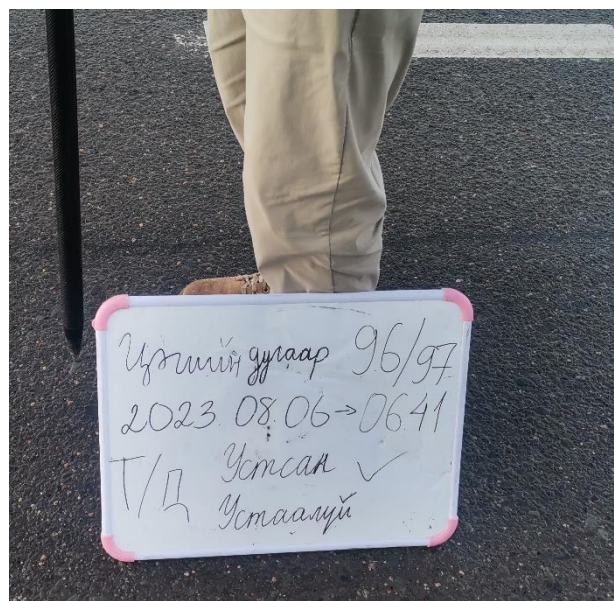 Цэгийн дугаар 96/97
2023.08.06→06.41
Т/Д Устсан ✓
Устаагүй